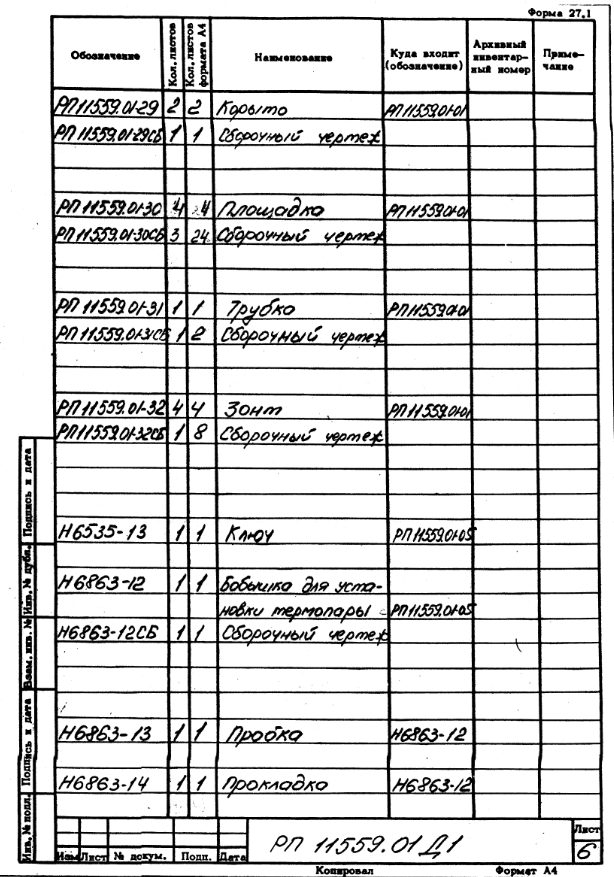 Форма 27.1
Обозначение Кол. листов Кол. листов формата А4 Наименование Куда входит (обозначение) Архивный инвентар-ный номер Приме-чание
РП 11559.01-29 2 2 Корыто РП 11559.01-01
РП 11559.01-29СБ 1 1 Сборочный чертеж
РП 11559.01-30 4 4 Площадка РП 11559.01-01
РП 11559.01-30СБ 3 24 Сборочный чертеж
РП 11559.01-31 1 1 Трубка РП 11559.01-01
РП 11559.01-31СБ 1 2 Сборочный чертеж
РП 11559.01-32 4 4 Зонт РП 11559.01-01
РП 11559.01-32СБ 1 8 Сборочный чертеж
Н6535-13 1 1 Ключ РП 11559.01-05
Н6863-12 1 1 Бобышка для уста-
новки термопары РП 11559.01-05
Н6863-12СБ 1 1 Сборочный чертеж
Н6863-13 1 1 Пробка Н6863-12
Н6863-14 1 1 Прокладка Н6863-12
Подпись и дата
Инв. № дубл.
Взам. инв. №
Подпись и дата
Инв. № подл.
Изм Лист № докум. Подп. Дата
РП 11559.01 Д1
Лист
6
Копировал Формат А4